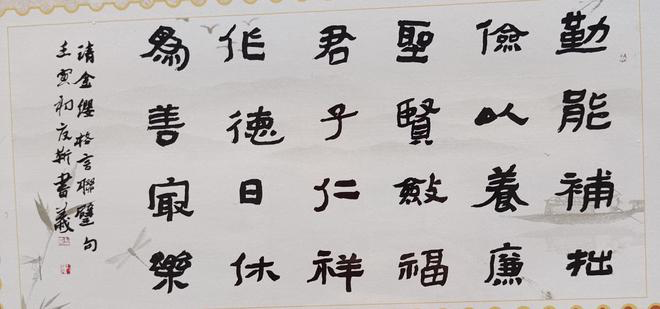 勤能補拙
儉以養廉
聖賢斂福
君子仁祥
作德日休
為善冣樂
清金纓格言聯璧句
壬寅初夜新書義